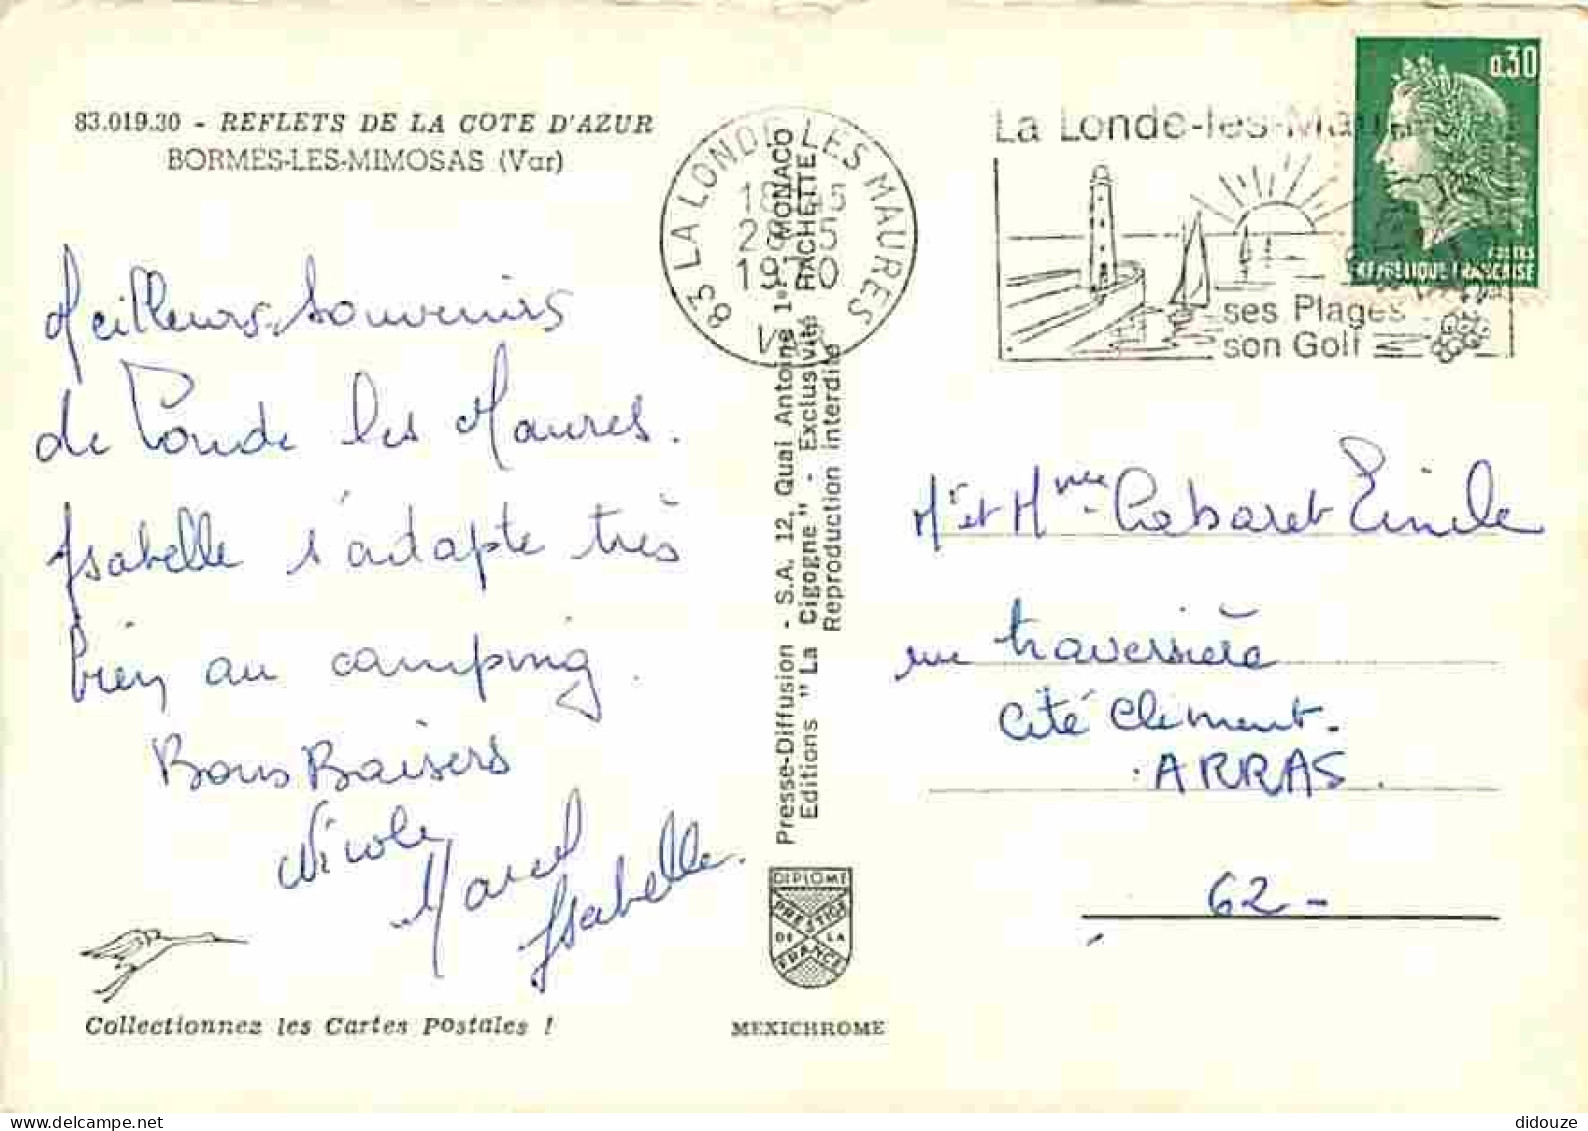 83.019.30 - REFLETS DE LA COTE D'AZUR
BORMES-LES-MIMOSAS (Var)
Meilleurs Souvenirs
de Londe les Maures.
Isabelle s'adapte très
bien au camping.
Bons Baisers
Nicole
Marcel
Isabelle.
Collectionnez les Cartes Postales !
83 LA LONDE LES MAURES
18
5
19
Presse-Diffusion - S.A. 12, Quai Antoine 1er MONACO
Editions "La Cigogne" - Exclusivité HACHETTE
Reproduction interdite
DIPLOME
PRESTIGE
DE LA
FRANCE
MEXICHROME
La Londe-les-Mau
ses Plages
son Golf
0.30
POSTES
REPUBLIQUE FRANCAISE
Mr et Mme Cabaret Emile
rue traversière
Cité Clément.
ARRAS.
62-
didouze